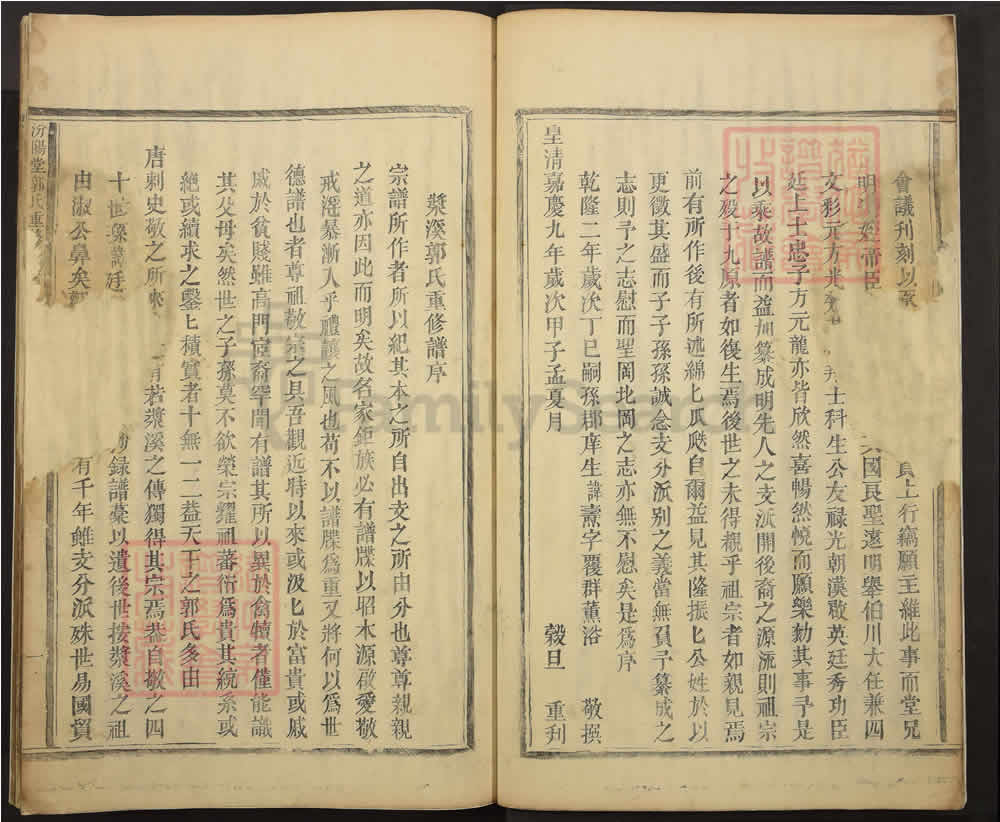 會議刊刻以 良上行竊願主維此事而堂兄
明 帝臣 國良聖遠明舉伯川大任兼四
文彩元方兆 士科生公友禄光朝漢敢英廷秀功臣
廷上士忠子方元龍亦皆欣然喜暢然悅而願樂勷其事予是
以乘故譜而益加纂成明先人之支派開後裔之源流則祖宗
之殁于九原者如復生焉後世之未得覩乎祖宗者如親見焉
前有所作後有所述綿匕瓜瓞自爾益見其隆振匕公姓於以
更徵其盛而子子孫孫誠念支分派别之義當無負予纂成之
志則予之志慰而聖闊北岡之志亦無不慰矣是爲序
乾隆二年歲次丁巳嗣孫郡庠生諱燾字覆群薰浴 敬撰
皇清嘉慶九年歲次甲子孟夏月 穀旦 重刋
槳溪郭氏重修譜序
宗譜所作者所以紀其本之所自出支之所由分也尊尊親親
之道亦因此而明矣故名家鉅族必有譜牒以昭本源啟愛敬
戒滛暴漸人乎禮讓之風也苟不以譜牒爲重又將何以爲世
德譜也者尊祖敬宗之具吾觀近時以來或汲匕於富貴或戚
戚於貧賤雖高門宦裔罕聞有譜其所以異於禽犢者僅能識
其父母矣然世之子孫莫不欲榮宗耀祖蕃衍爲貴其統系或
絶或續求之鑿匕積實者十無一二益天下之郭氏多由
唐刺史敬之所 有若槳溪之傳獨得其宗焉 自敬之四
十世 錄譜藁以遺後世按槳溪之祖
由淑公鼻矣 有千年雖支分派殊世易國貿
汾陽堂郭氏重
一
FamilySearch